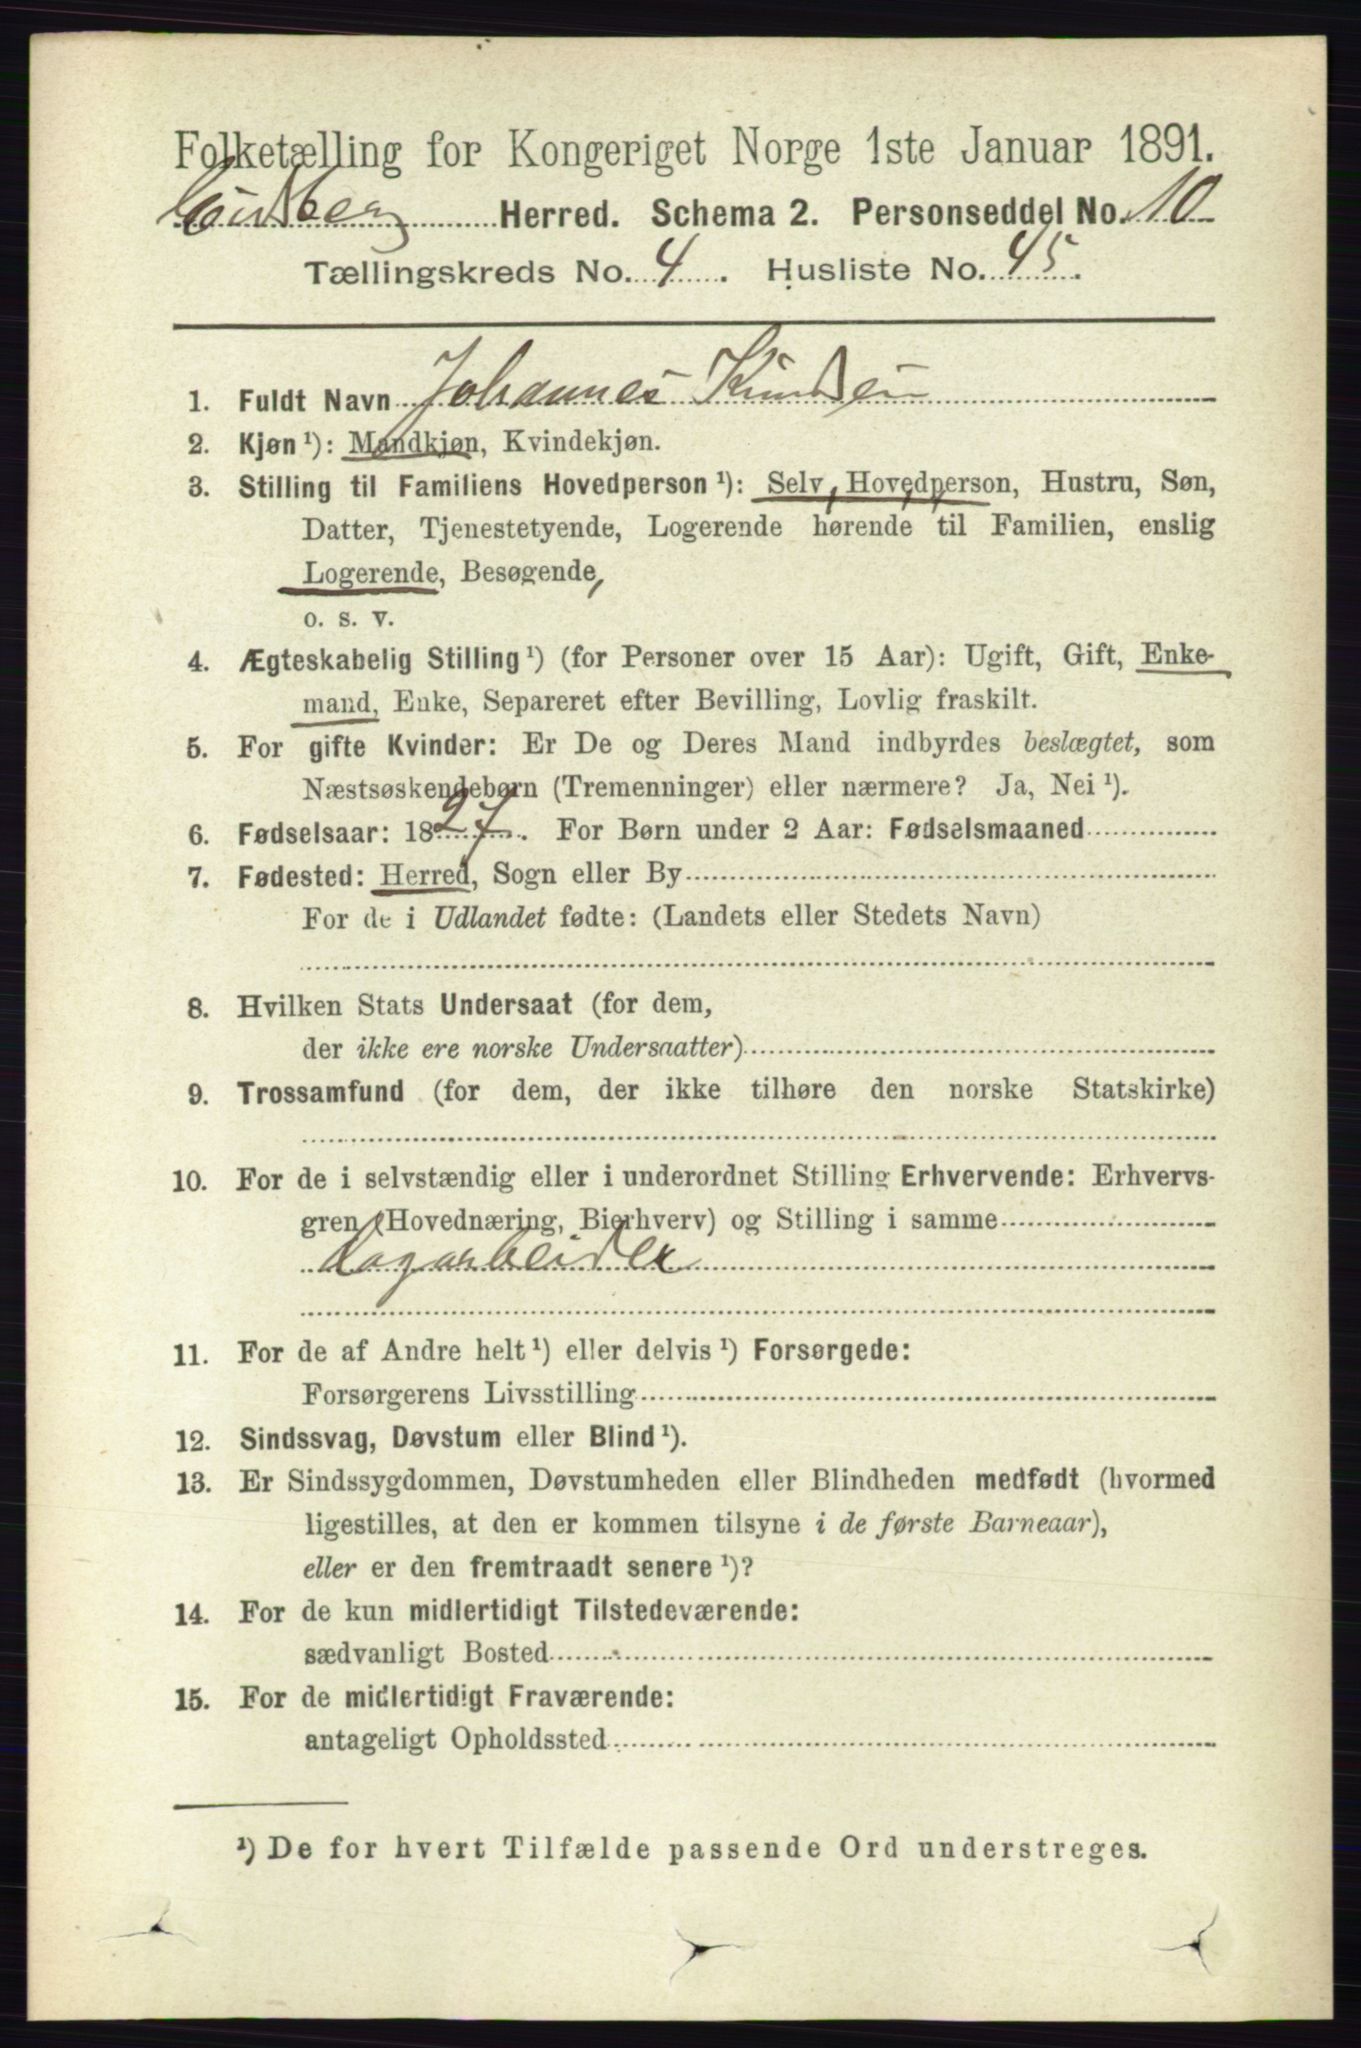 Folketælling for Kongeriget Norge 1ste Januar 1891.
Eidsberg Herred. Schema 2. Personseddel No. 10
Tællingskreds No. 4. Husliste No. 45.
1. Fuldt Navn Johannes Knudsen
2. Kjøn ¹): Mandkjøn, Kvindekjøn.
3. Stilling til Familiens Hovedperson ¹): Selv, Hovedperson, Hustru, Søn,
Datter, Tjenestetyende, Logerende hørende til Familien, enslig
Logerende, Besøgende,
o. s. v.
4. Ægteskabelig Stilling ¹) (for Personer over 15 Aar): Ugift, Gift, Enke-
mand, Enke, Separeret efter Bevilling, Lovlig fraskilt.
5. For gifte Kvinder: Er De og Deres Mand indbyrdes beslægtet, som
Næstsøskendebørn (Tremenninger) eller nærmere? Ja, Nei ¹).
6. Fødselsaar: 1827. For Børn under 2 Aar: Fødselsmaaned
7. Fødested: Herred, Sogn eller By
For de i Udlandet fødte: (Landets eller Stedets Navn)
8. Hvilken Stats Undersaat (for dem,
der ikke ere norske Undersaatter)
9. Trossamfund (for dem, der ikke tilhøre den norske Statskirke)
10. For de i selvstændig eller i underordnet Stilling Erhvervende: Erhvervs-
gren (Hovednæring, Bierhverv) og Stilling i samme
dagarbeider
11. For de af Andre helt ¹) eller delvis ¹) Forsørgede:
Forsørgerens Livsstilling
12. Sindssvag, Døvstum eller Blind ¹).
13. Er Sindssygdommen, Døvstumheden eller Blindheden medfødt (hvormed
ligestilles, at den er kommen tilsyne i de første Barneaar),
eller er den fremtraadt senere ¹)?
14. For de kun midlertidigt Tilstedeværende:
sædvanligt Bosted
15. For de midlertidigt Fraværende:
antageligt Opholdssted
¹) De for hvert Tilfælde passende Ord understreges.